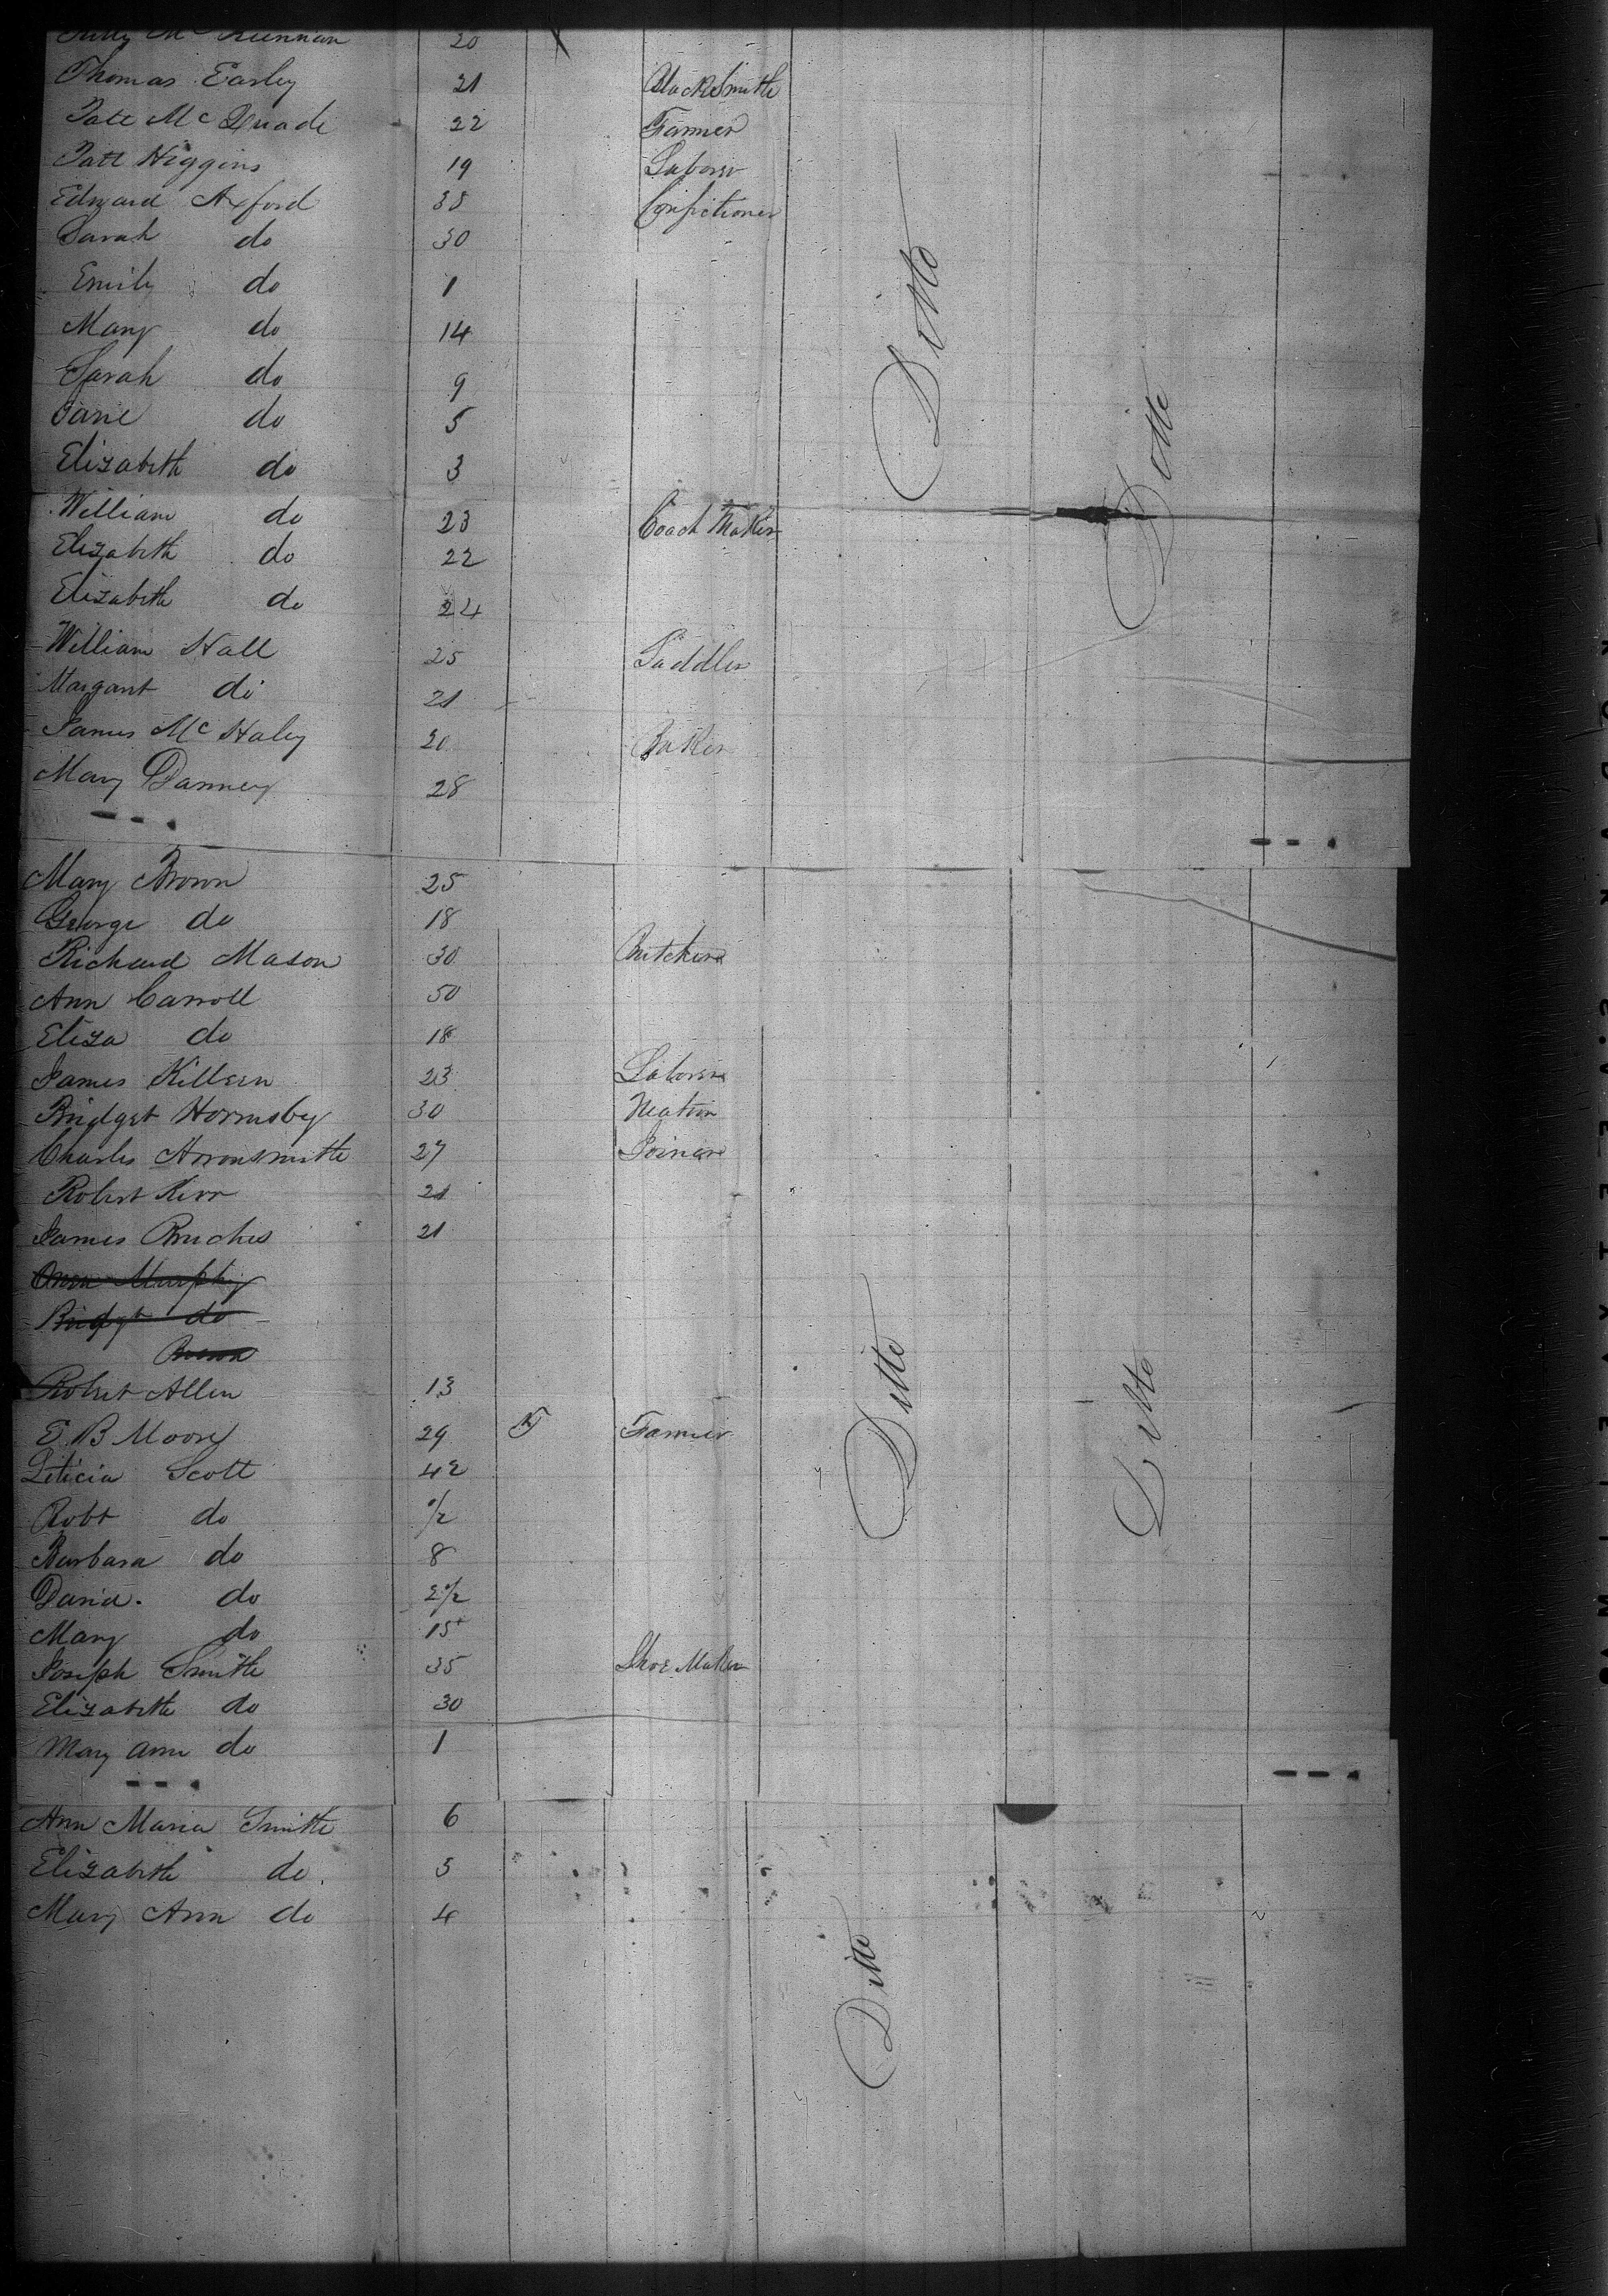 20
Thomas Earley 21 BlackSmith
Patt Mc Quade 22 Farmer
Patt Higgins 19 Laborer
Edward Axford 38 Confictioner
Sarah do 30
Emily do 1
Mary do 14
Sarah do 9
Jane do 5
Elizabeth do 3
William do 23 Coach Maker
Elizabeth do 22
Elizabeth do 24
William Hall 25 Saddler
Margaret do 21
James Mc Haley 20 Baker
Mary Danney 28
Ditto
Ditto
Mary Brown 25
George do 18
Richard Mason 30 Butcher
Ann Carroll 50
Eliza do 18
James Killern 23 Laborer
Bridget Hormsby 30
Charles 27 Joiner
Robert Kerr 21
James 21
Owen Murphy
Bridgt do
Robert Allen 13
E B Moory 29 Farmer
Leticia Scott 42
Robt do 1/2
Barbara do 8
David do 2 1/2
Mary do 15
Joseph Smith 35 Shoe Maker
Elizabeth do 30
Mary Ann do 1
Ditto
Ditto
Ann Maria Smith 6
Elizabeth do 5
Mary Ann do 4
Ditto